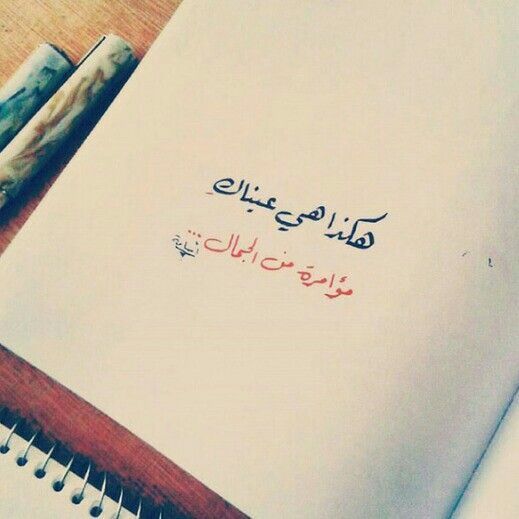 هكذا هي عيناكِ
مؤامرة من الجمال ...